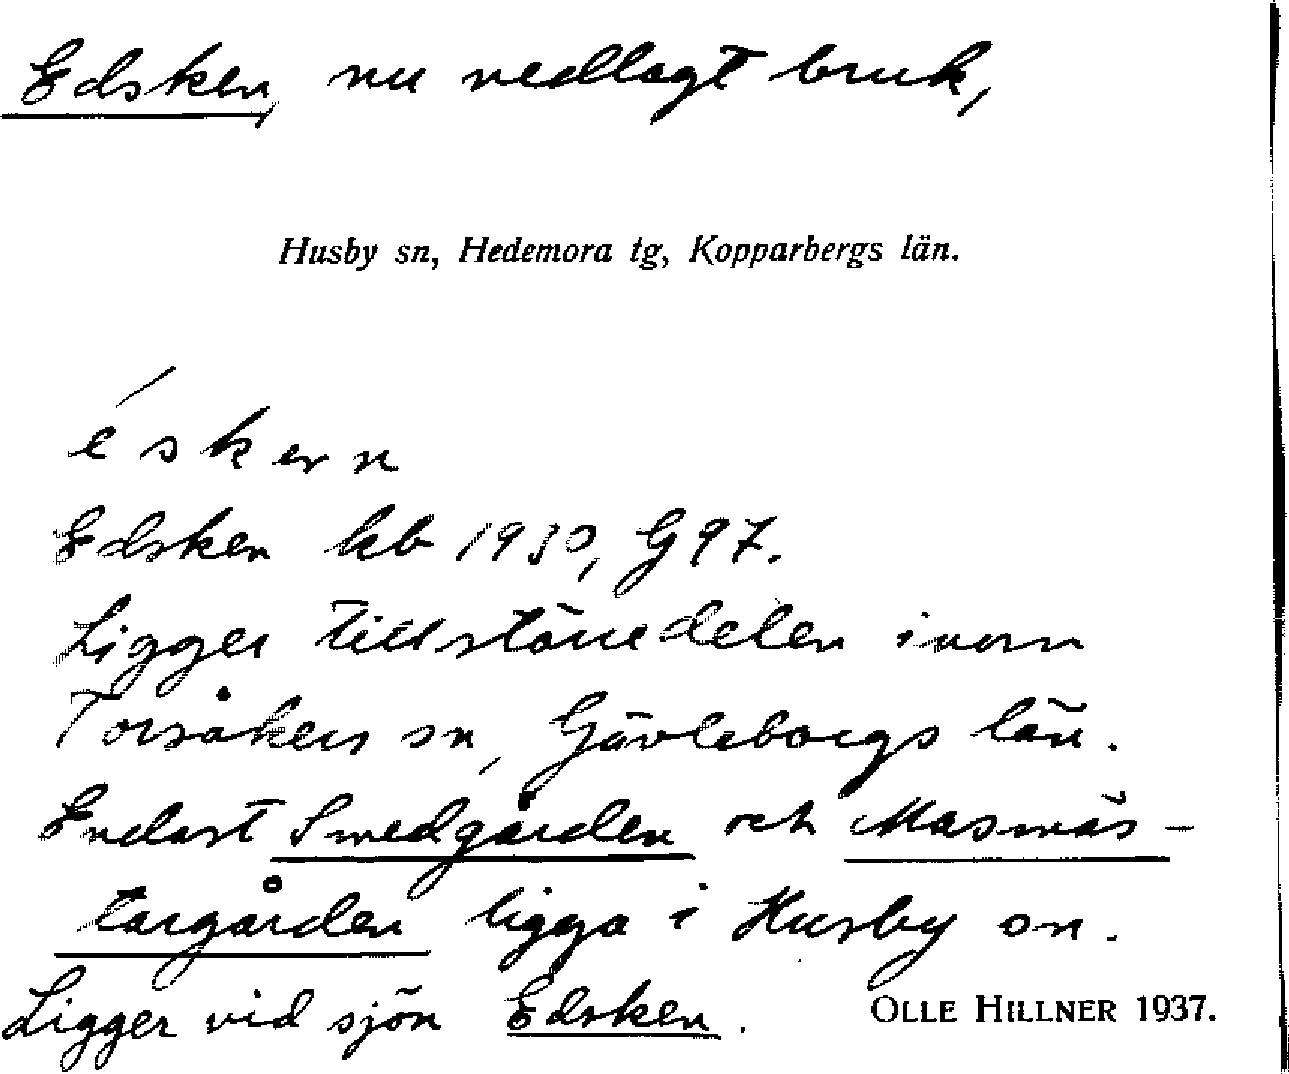 Edsken, nu nedlagt bruk,
Husby sn, Hedemora tg, Kopparbergs län.
éskern
Edsken kb 1930, G 97.
Ligger till största delen inom
Torsåkers sn, Gävleborgs län.
Endast Smedgården och Masmäs-
targården ligga i Husby sn.
Ligger vid sjön Edsken.
OLLE HILLNER 1937.